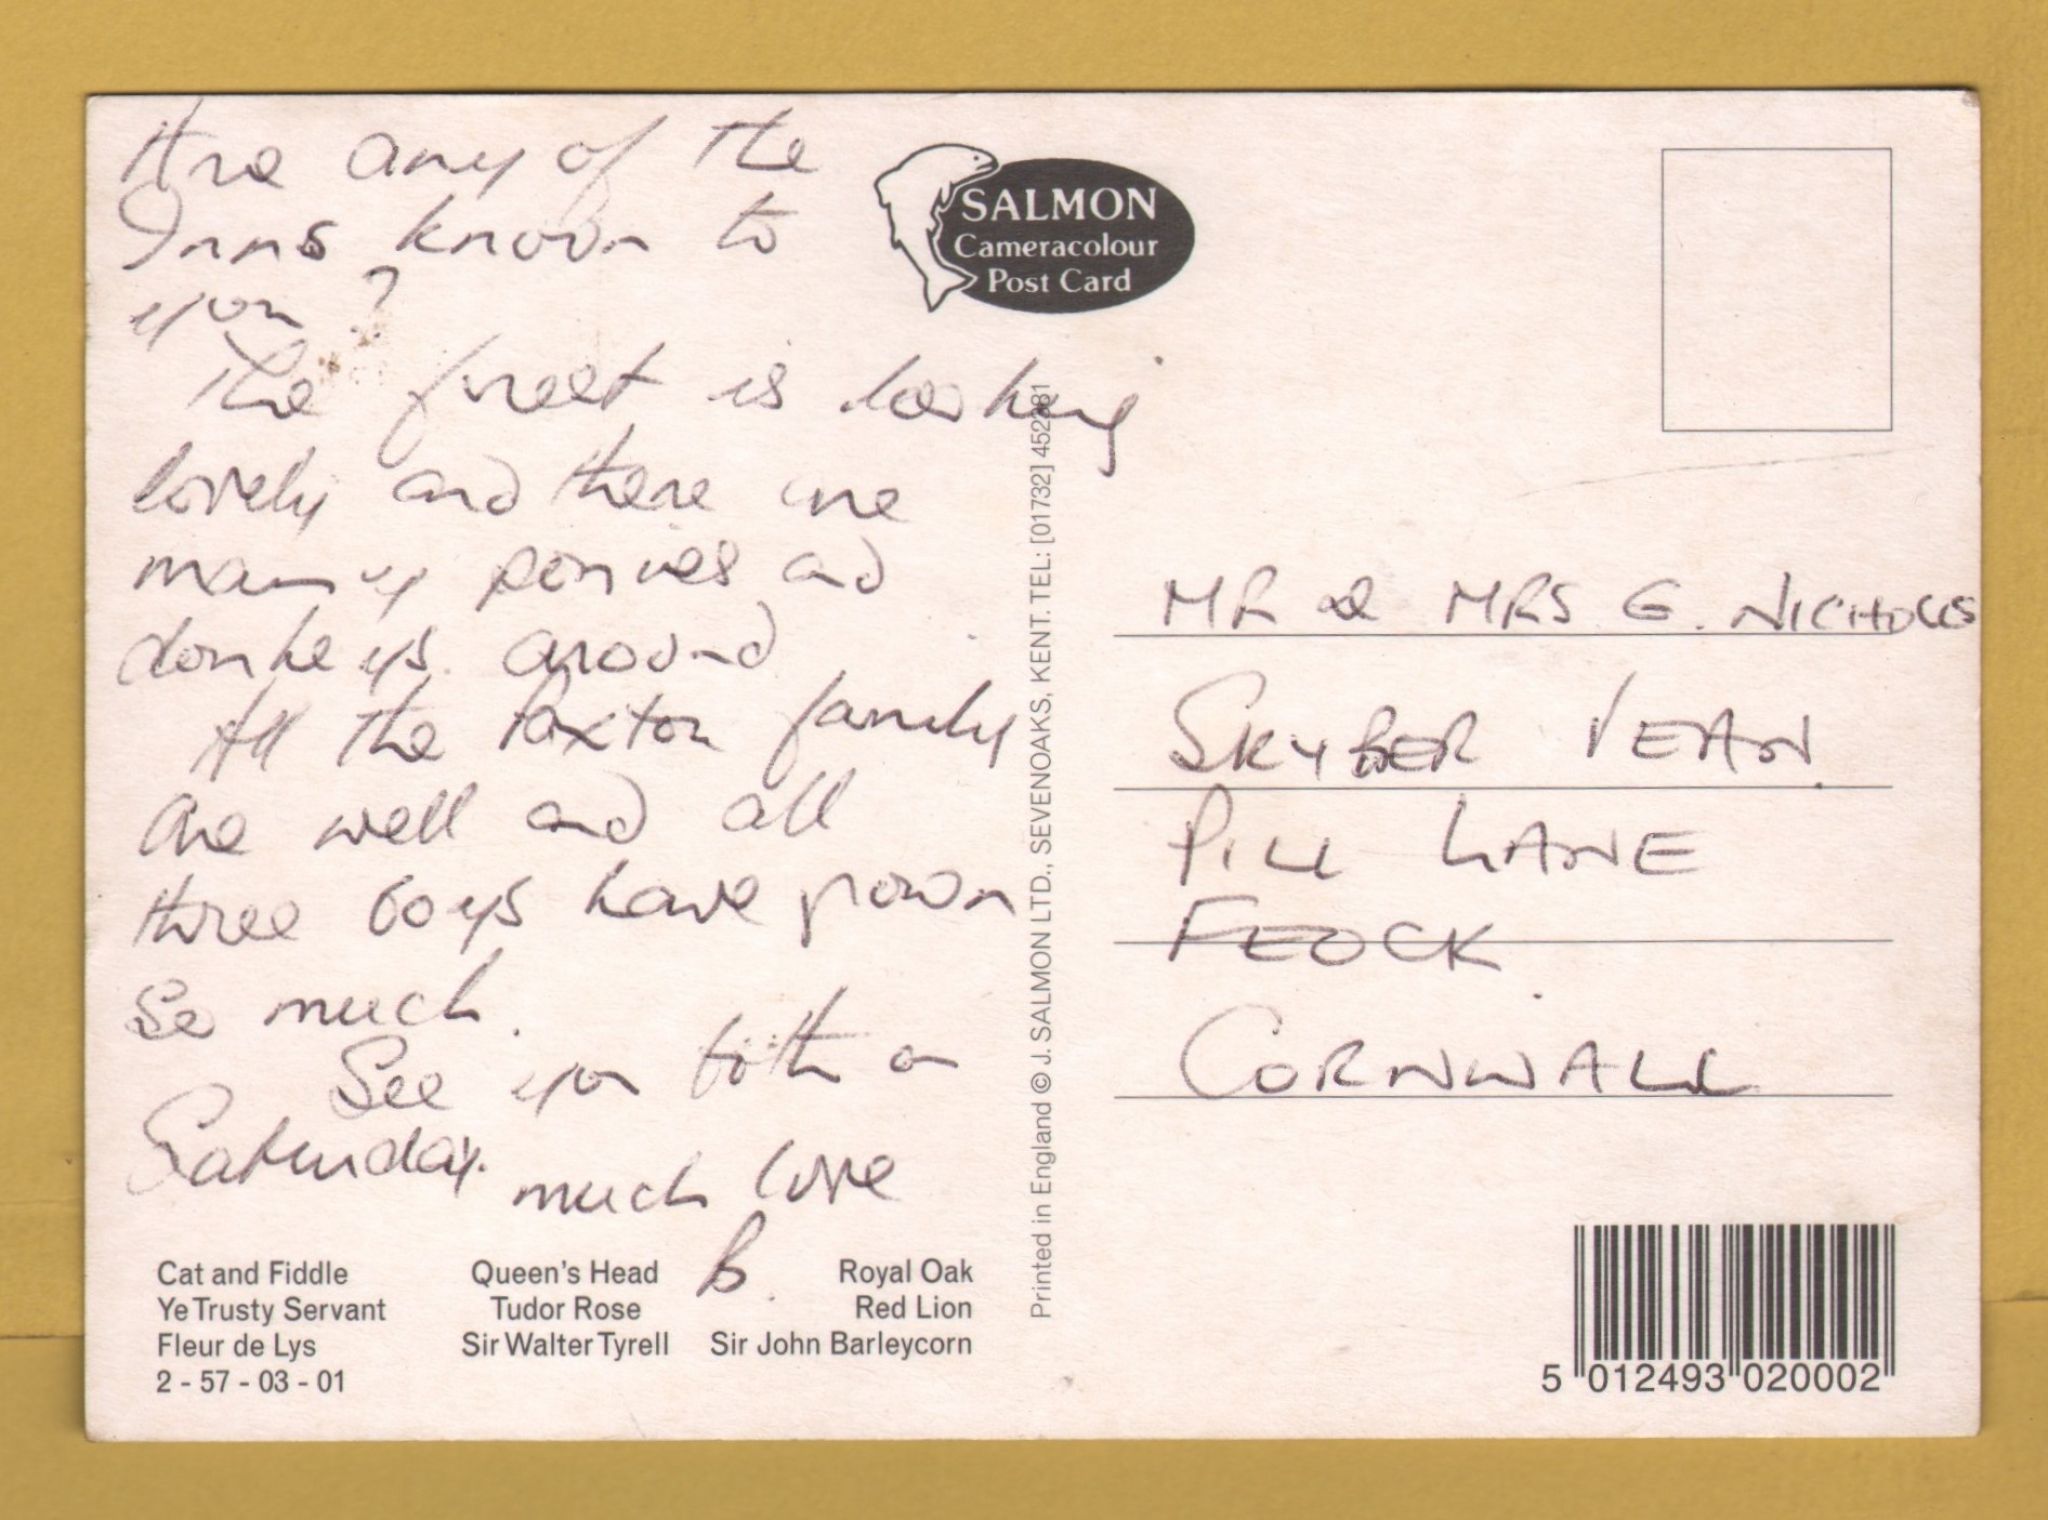 Are any of the
Inns known to
you?
The forest is looking
lovely and there are
many ponies and
donkeys around
All the Paxton family
are well and all
three boys have grown
so much.
See you both on
Saturday.
much love
B.
Cat and Fiddle
Ye Trusty Servant
Fleur de Lys
2 - 57 - 03 - 01
Queen's Head
Tudor Rose
Sir Walter Tyrell
Royal Oak
Red Lion
Sir John Barleycorn
SALMON
Cameracolour
Post Card
Printed in England © J. SALMON LTD., SEVENOAKS, KENT. TEL: [01732] 452381
MR & MRS G. NICHOLLS
SKYBER VEAN
PILL LANE
FEOCK
CORNWALL
5 012493 020002